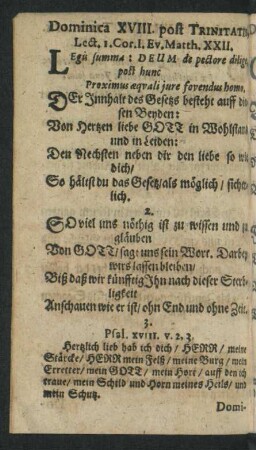 Dominica XVIII. post TRINITATIS
Lect. 1. Cor. I. Ev. Matth. XXII.
LEgis summa: DEUM de pectore dilige,
post hunc
Proximus æquali jure fovendus homo.
DEr Innhalt des Gesetzs besteht auff die
sen Beyden:
Von Hertzen liebe GOTT in Wohlstand
und in Leiden:
Den Nechsten neben dir den liebe so wie
dich/
So hältst du das Gesetz/als möglich/ sicher-
lich.
2.
SO viel uns nöthig ist zu wissen und zu
gläuben
Von GOTT/ sagt uns sein Wort. Darbey
wirs lassen bleiben/
Biß daß wir künfftig Ihn nach dieser Sterb-
ligkeit
Anschauen wie er ist/ ohn End und ohne Zeit.
3.
Psal. XVIII. v. 2. 3.
Hertzlich lieb hab ich dich/ HERR/ meine
Stärcke/ HERR mein Felß/ meine Burg/ mein
Erretter/ mein GOTT/ mein Hort/ auff den ich
traue/ mein Schild und Horn meines Heils/ und
mein Schutz.
Domi-